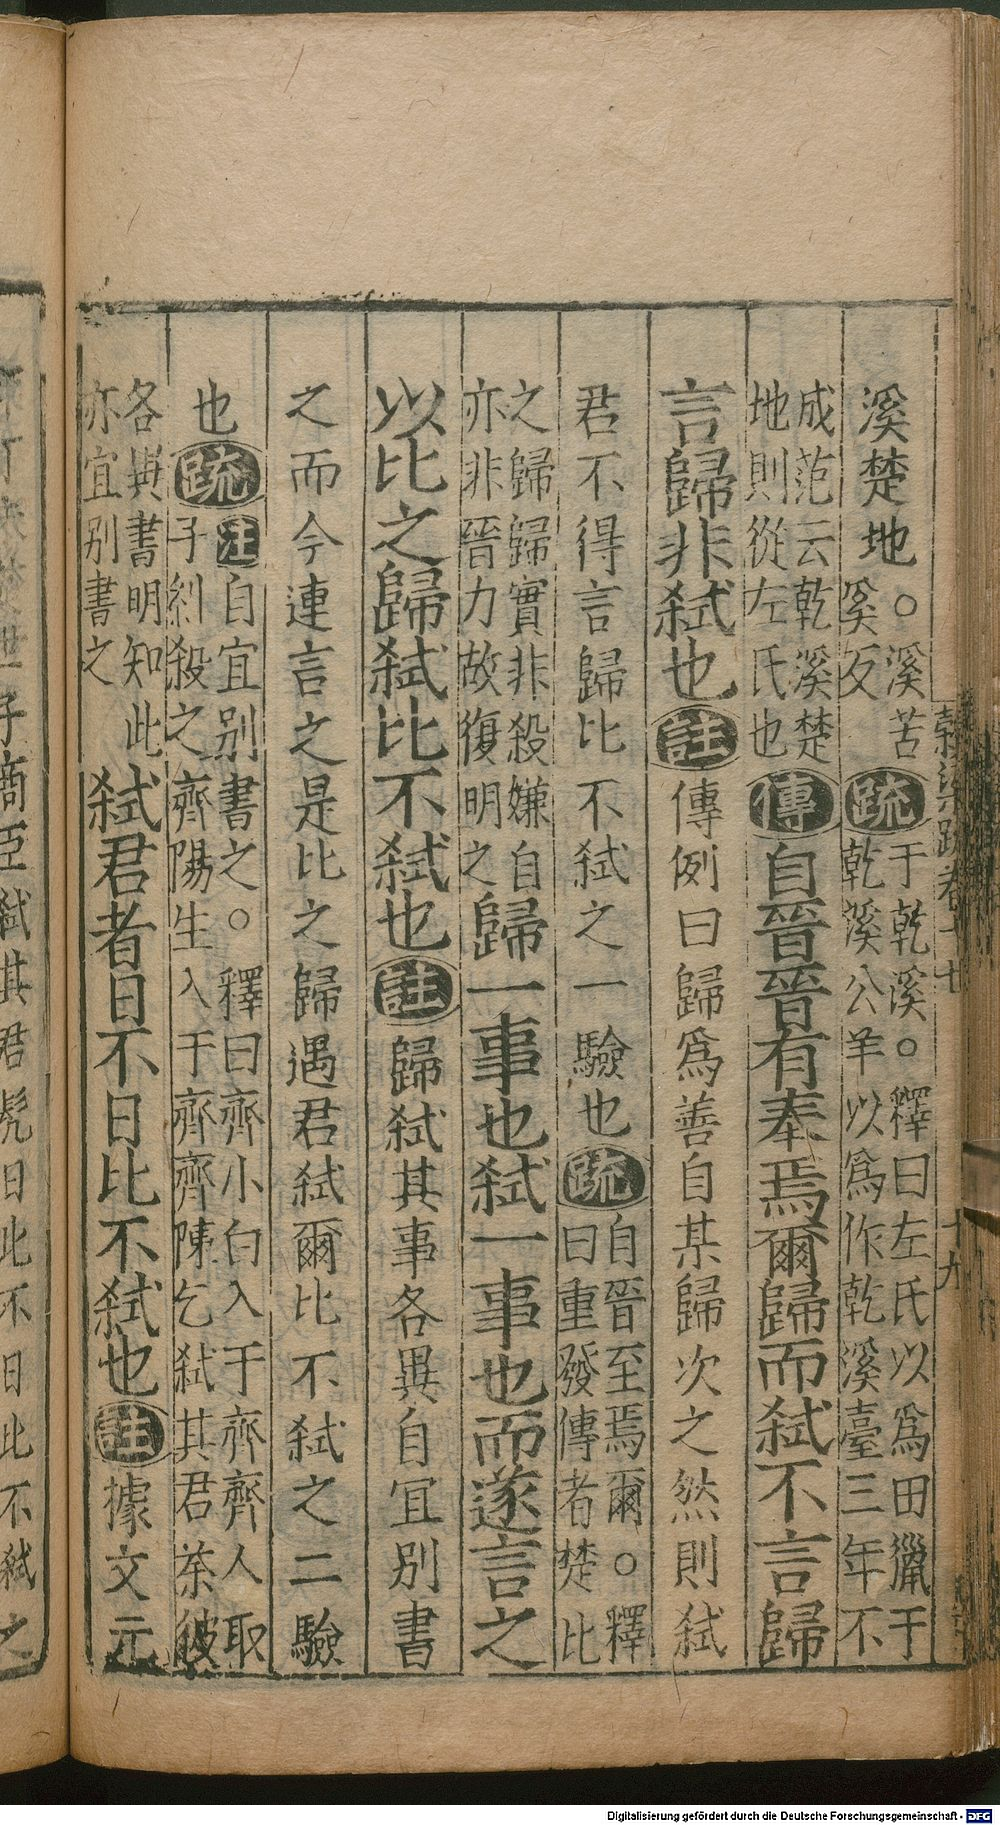 溪楚地。溪苦奚反疏于乾溪。釋曰左氏以爲田獵于乾溪公羊以爲作乾溪臺三年不
成范云乾溪楚地則從左氏也傳自晉晉有奉焉爾歸而弒不言歸
言歸非弒也註傳例曰歸爲善自某歸次之然則弒
君不得言歸比不弒之一驗也疏自晉至焉爾。釋曰重發傳者楚比
之歸歸實非殺嫌自亦非晉力故復明之歸一事也弒一事也而遂言之
以比之歸弒比不弒也註歸弒其事各異自宜別書
之而今連言之是比之歸遇君弒爾比不弒之二驗
也疏注自宜别書之。釋曰齊小白入于齊齊人取子糾殺之齊陽生入于齊齊陳乞弒其君荼彼
各異書明知此亦宜别書之弒君者日不日比不弒也註據文元
穀梁疏卷十七
十九
子商臣弒其君髡日此不日比不弒之
Digitalisierung gefördert durch die Deutsche Forschungsgemeinschaft - DFG